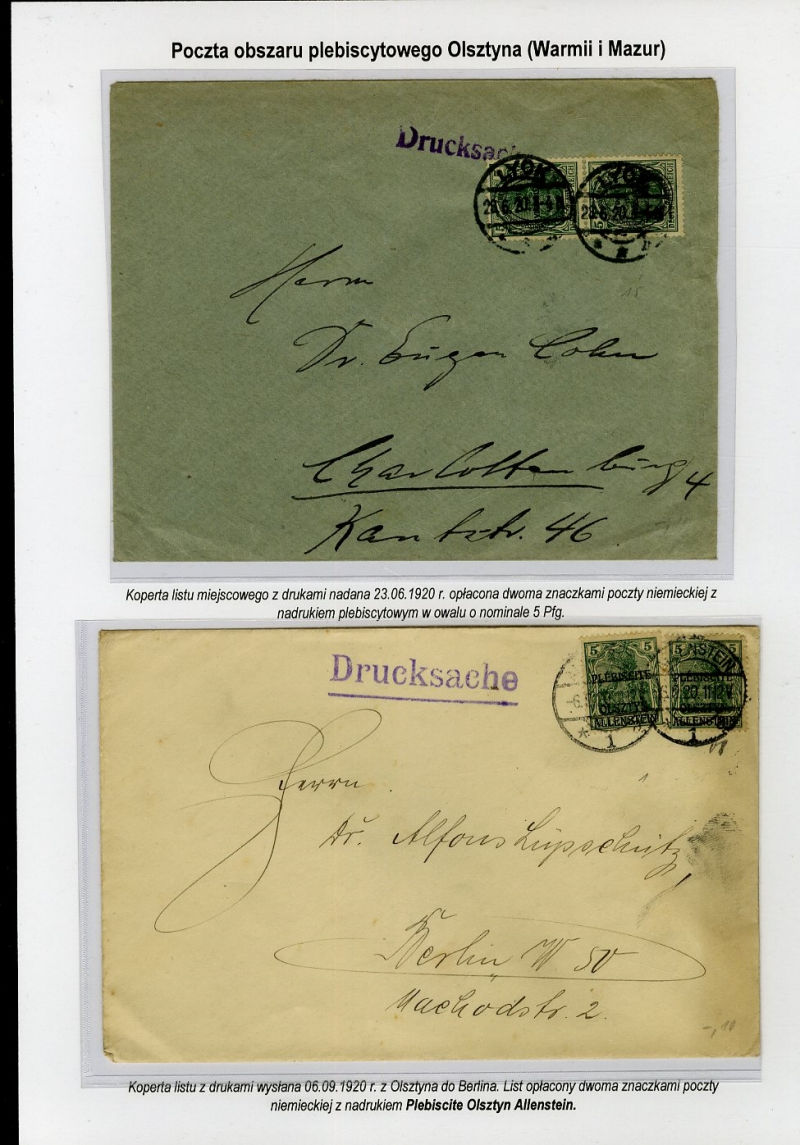 Poczta obszaru plebiscytowego Olsztyna (Warmii i Mazur)
Drucksache
LYCK LYCK
23.6.20
Herrn
Dr. Eugen Cohn
Charlottenburg 4
Kantstr. 46
Koperta listu miejscowego z drukami nadana 23.06.1920 r. opłacona dwoma znaczkami poczty niemieckiej z
nadrukiem plebiscytowym w owalu o nominale 5 Pfg.
Drucksache
5 5 5 5
PLÉBISCITE PLÉBISCITE
OLSZTYN OLSZTYN
ALLENSTEIN ALLENSTEIN
1 1
Herrn
Dr. Alfons Lüpschütz,
Berlin W 50
Machodstr. 2.
-,10
Koperta listu z drukami wysłana 06.09.1920 r. z Olsztyna do Berlina. List opłacony dwoma znaczkami poczty
niemieckiej z nadrukiem Plebiscite Olsztyn Allenstein.